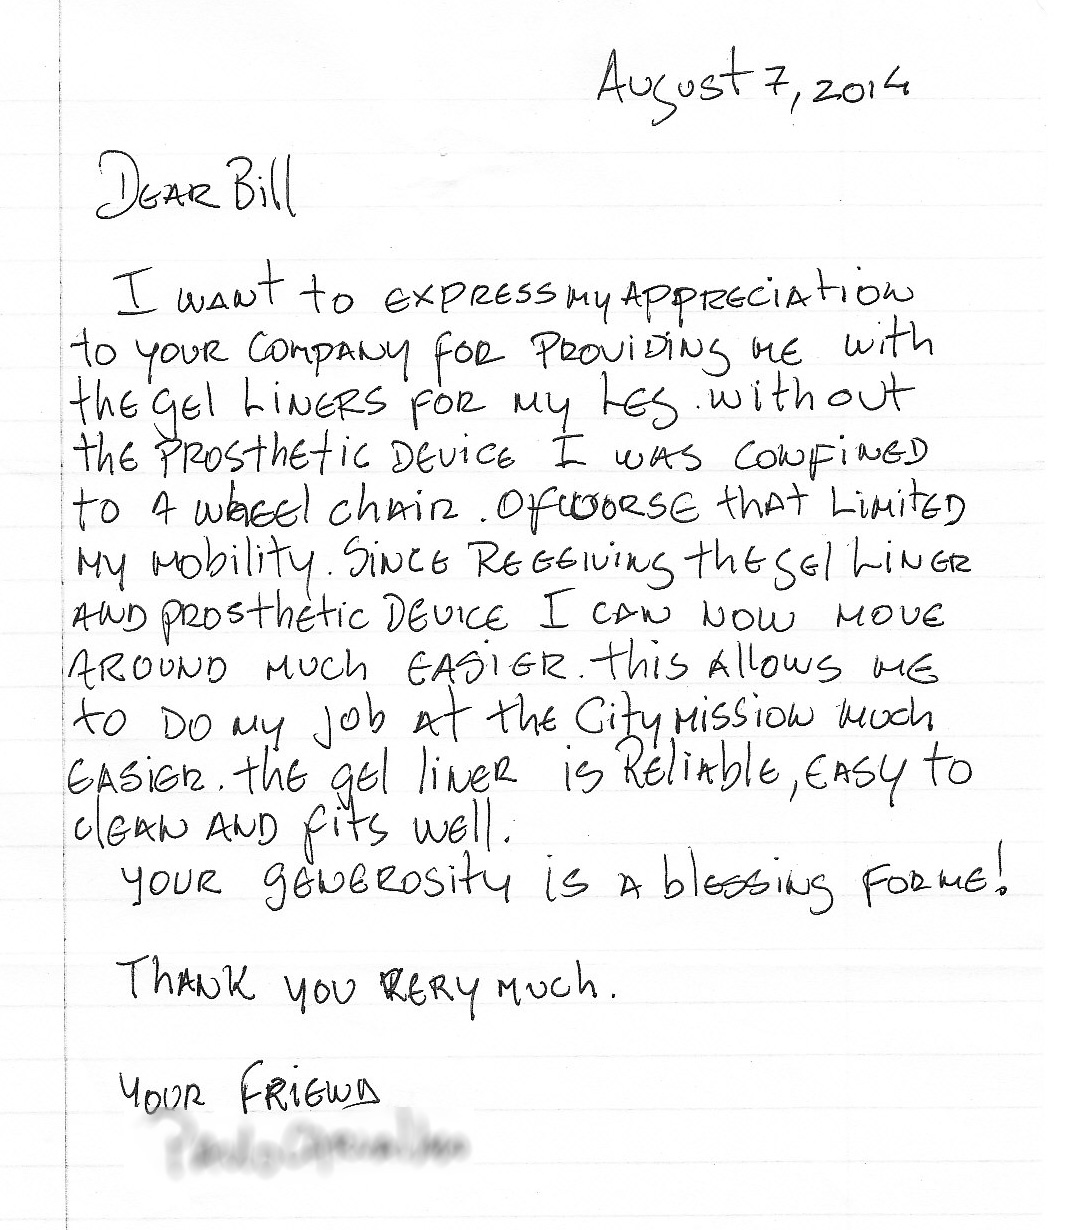 August 7, 2014
Dear Bill
I want to express my appreciation
to your company for providing me with
the gel liners for my leg. without
the prosthetic device I was confined
to a wheel chair. Ofcoorse that limited
my mobility. Since receiving the gel liner
and prosthetic device I can now move
around much easier. this allows me
to do my job at the City mission much
easier. the gel liner is reliable, easy to
clean and fits well.
your generosity is a blessing for me!
Thank you very much.
your friend